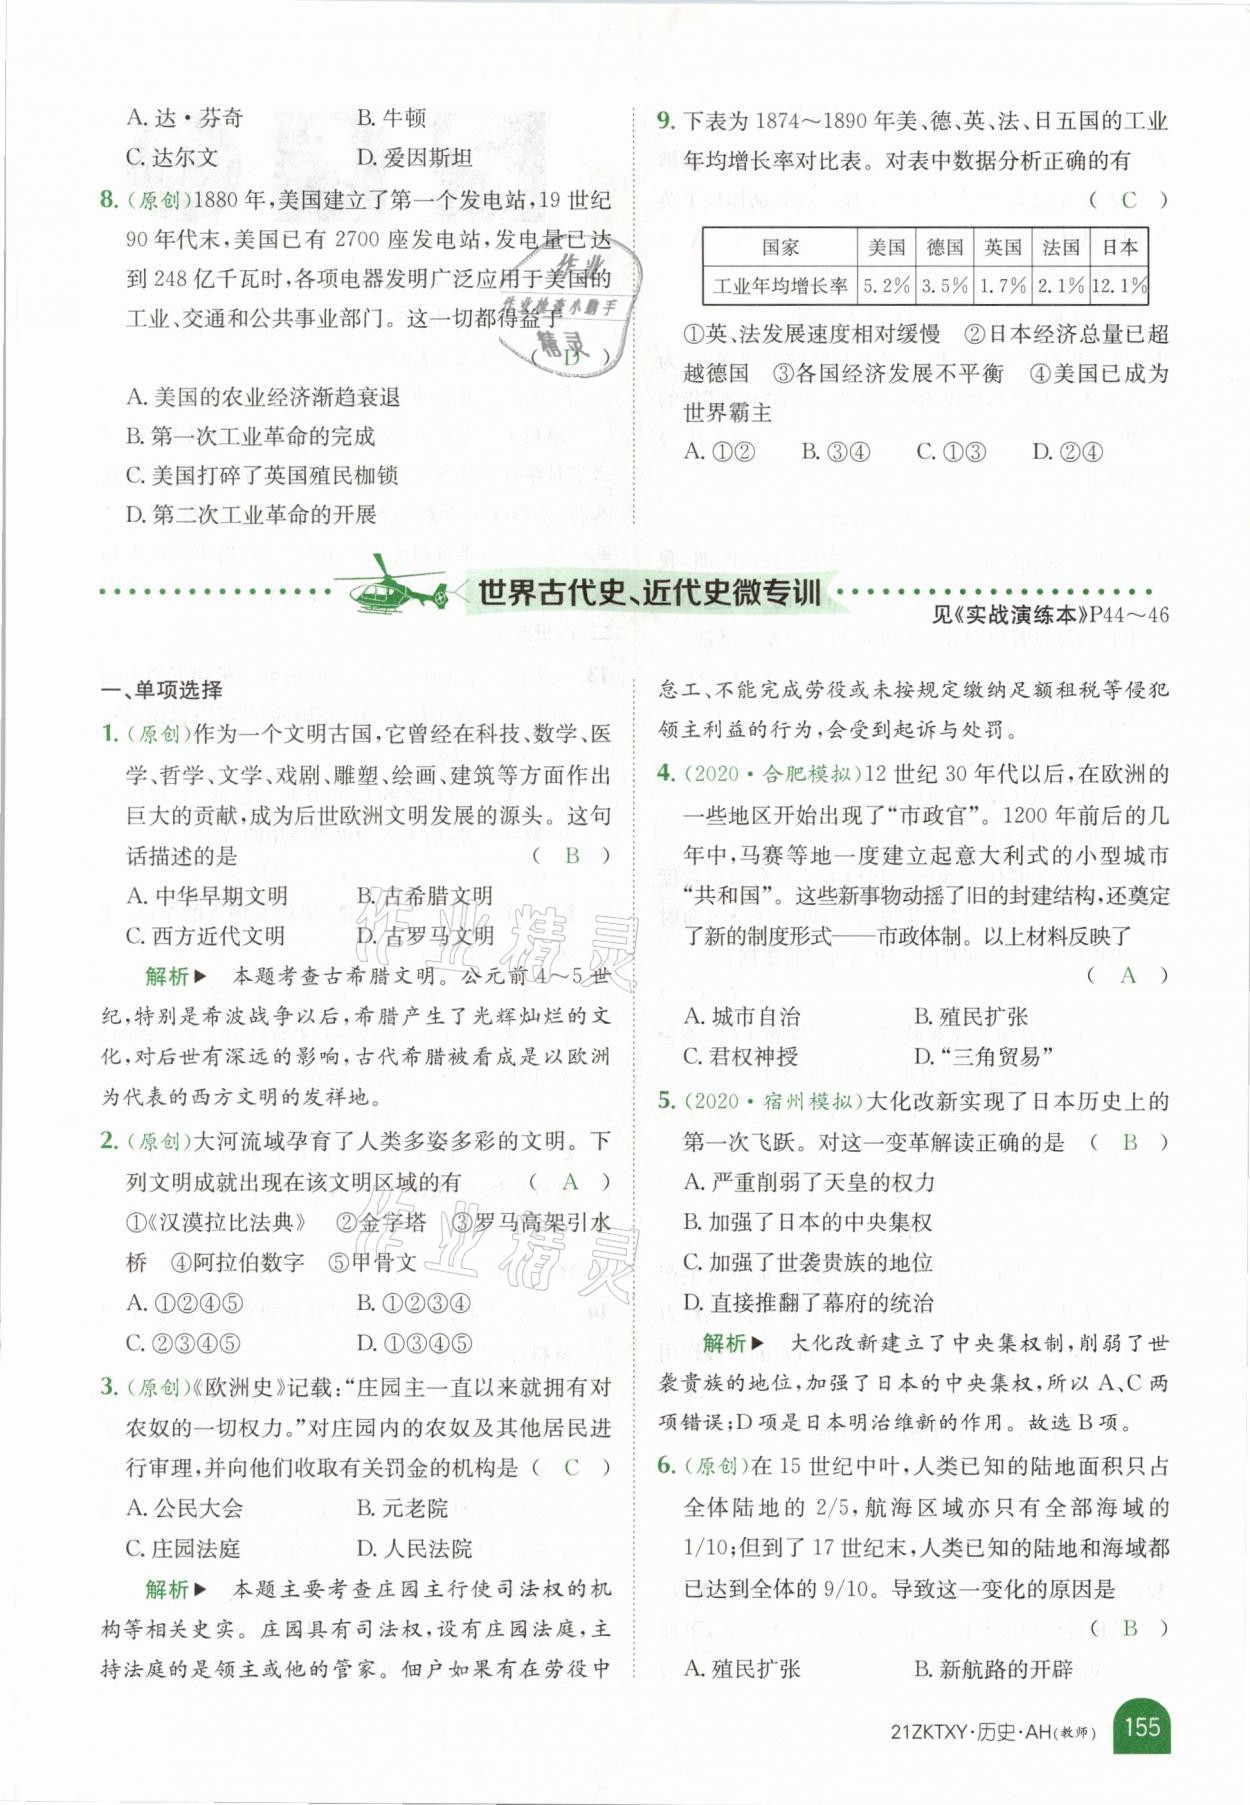 A. 达·芬奇 B. 牛顿
C. 达尔文 D. 爱因斯坦
8. (原创)1880 年,美国建立了第一个发电站,19 世纪
90 年代末,美国已有 2700 座发电站,发电量已达
到 248 亿千瓦时,各项电器发明广泛应用于美国的
工业、交通和公共事业部门。这一切都得益于
( D )
A. 美国的农业经济渐趋衰退
B. 第一次工业革命的完成
C. 美国打碎了英国殖民枷锁
D. 第二次工业革命的开展
9. 下表为 1874～1890 年美、德、英、法、日五国的工业
年均增长率对比表。对表中数据分析正确的有
( C )
国家 美国 德国 英国 法国 日本
工业年均增长率 5.2% 3.5% 1.7% 2.1% 12.1%
①英、法发展速度相对缓慢 ②日本经济总量已超
越德国 ③各国经济发展不平衡 ④美国已成为
世界霸主
A. ①② B. ③④ C. ①③ D. ②④
作业
作业检查小助手
精灵
世界古代史、近代史微专训
见《实战演练本》P44～46
一、单项选择
1. (原创)作为一个文明古国,它曾经在科技、数学、医
学、哲学、文学、戏剧、雕塑、绘画、建筑等方面作出
巨大的贡献,成为后世欧洲文明发展的源头。这句
话描述的是 ( B )
A. 中华早期文明 B. 古希腊文明
C. 西方近代文明 D. 古罗马文明
解析▶ 本题考查古希腊文明。公元前 4～5 世
纪,特别是希波战争以后,希腊产生了光辉灿烂的文
化,对后世有深远的影响,古代希腊被看成是以欧洲
为代表的西方文明的发祥地。
2. (原创)大河流域孕育了人类多姿多彩的文明。下
列文明成就出现在该文明区域的有 ( A )
①《汉漠拉比法典》 ②金字塔 ③罗马高架引水
桥 ④阿拉伯数字 ⑤甲骨文
A. ①②④⑤ B. ①②③④
C. ②③④⑤ D. ①③④⑤
3. (原创)《欧洲史》记载:“庄园主一直以来就拥有对
农奴的一切权力。”对庄园内的农奴及其他居民进
行审理,并向他们收取有关罚金的机构是 ( C )
A. 公民大会 B. 元老院
C. 庄园法庭 D. 人民法院
解析▶ 本题主要考查庄园主行使司法权的机
构等相关史实。庄园具有司法权,设有庄园法庭,主
持法庭的是领主或他的管家。佃户如果有在劳役中
怠工、不能完成劳役或未按规定缴纳足额租税等侵犯
领主利益的行为,会受到起诉与处罚。
4. (2020·合肥模拟)12 世纪 30 年代以后,在欧洲的
一些地区开始出现了“市政官”。1200 年前后的几
年中,马赛等地一度建立起意大利式的小型城市
“共和国”。这些新事物动摇了旧的封建结构,还奠定
了新的制度形式——市政体制。以上材料反映了
( A )
A. 城市自治 B. 殖民扩张
C. 君权神授 D. “三角贸易”
5. (2020·宿州模拟)大化改新实现了日本历史上的
第一次飞跃。对这一变革解读正确的是 ( B )
A. 严重削弱了天皇的权力
B. 加强了日本的中央集权
C. 加强了世袭贵族的地位
D. 直接推翻了幕府的统治
解析▶ 大化改新建立了中央集权制,削弱了世
袭贵族的地位,加强了日本的中央集权,所以 A、C 两
项错误;D 项是日本明治维新的作用。故选 B 项。
6. (原创)在 15 世纪中叶,人类已知的陆地面积只占
全体陆地的 2/5,航海区域亦只有全部海域的
1/10;但到了 17 世纪末,人类已知的陆地和海域都
已达到全体的 9/10。导致这一变化的原因是
( B )
A. 殖民扩张 B. 新航路的开辟
作业精灵
作业精灵
21ZKTXY·历史·AH(教师)
155